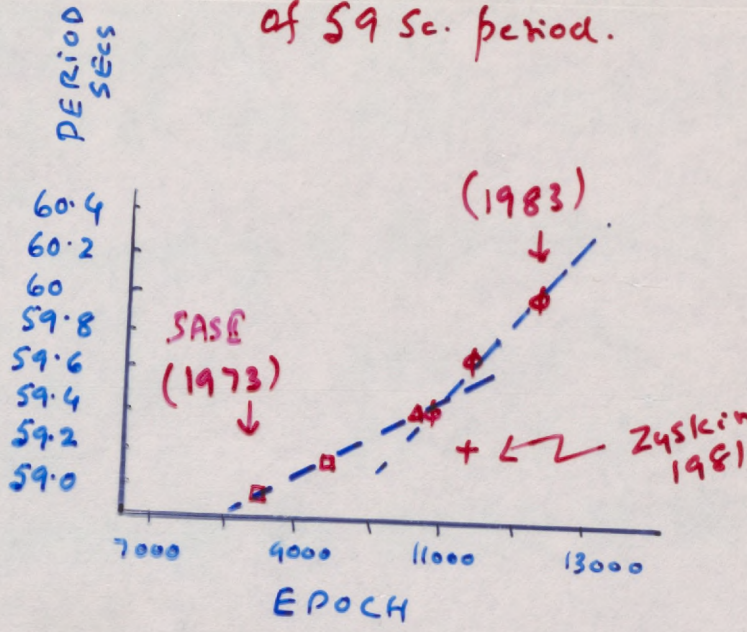 of 59 Sc. period.
PERIOD
SECS
60.4
60.2
60
59.8
59.6
59.4
59.2
59.0
(1983)
SASE
(1973)
Zyskin
1981
7000 9000 11000 13000
EPOCH